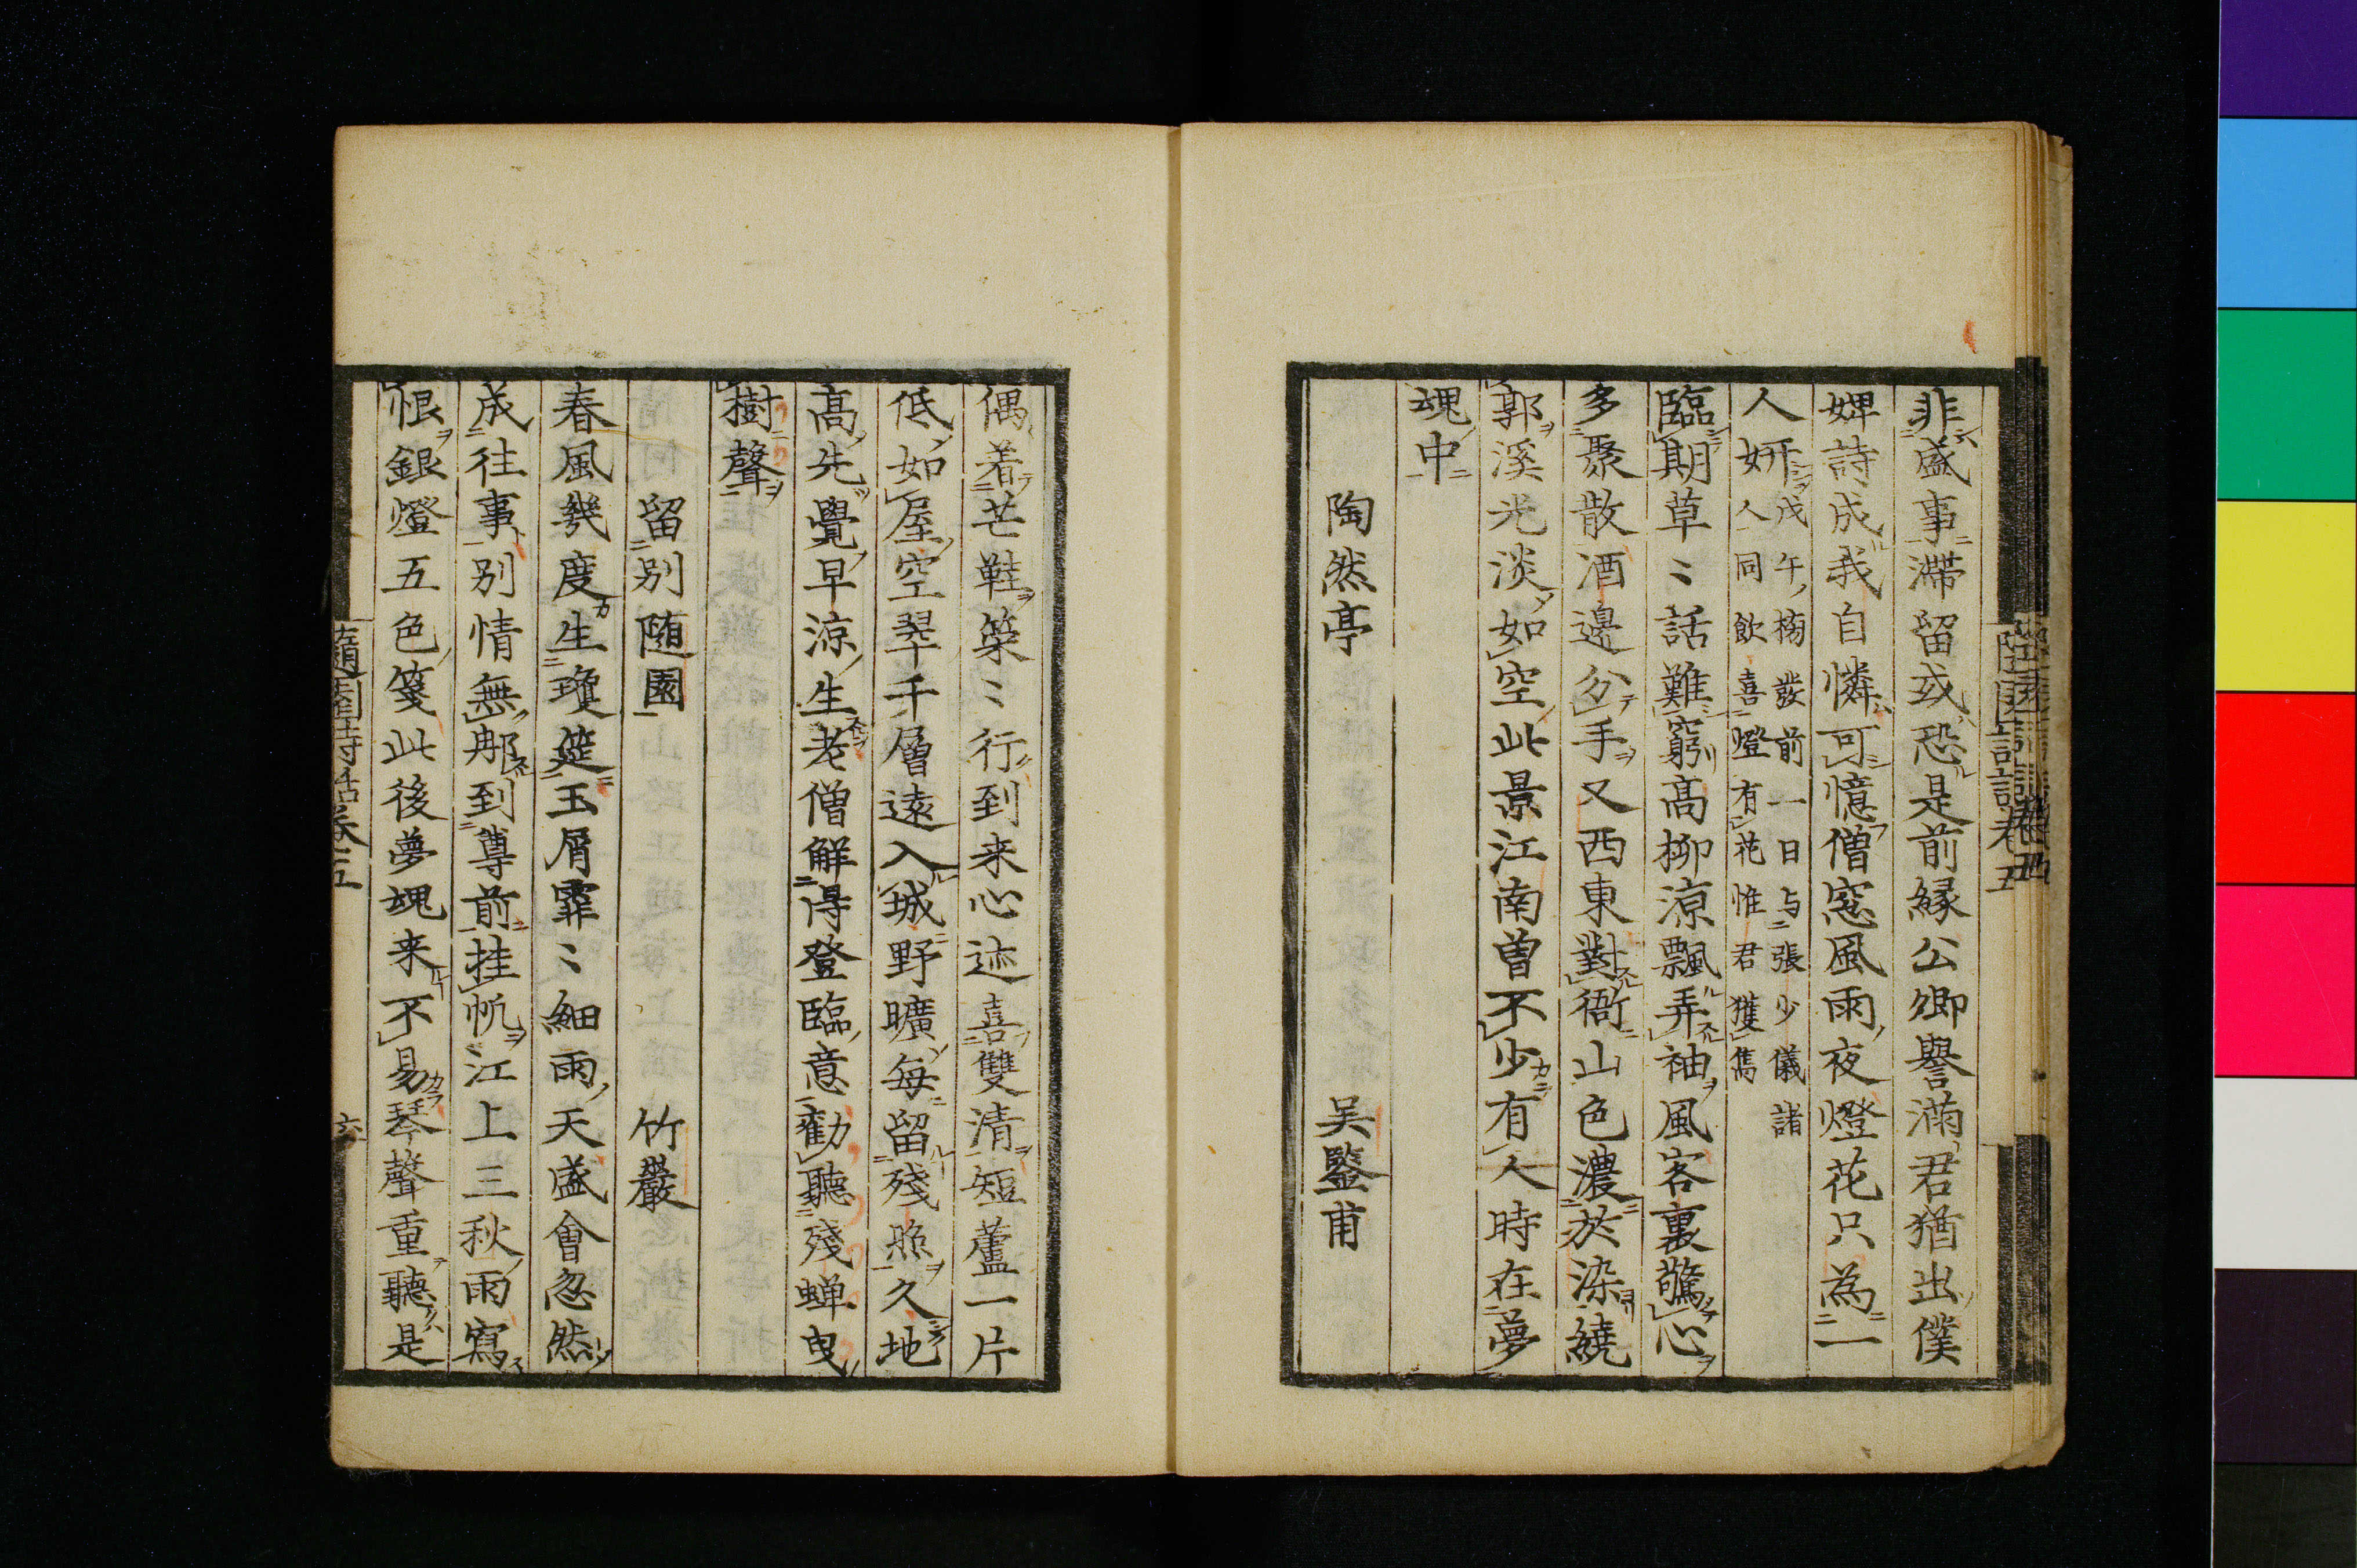 非盛事滞留或恐是前縁公卿譽滿君猶出僕
婢詩成我自憐可憶僧窓風雨夜燈花只為一
人妍戊午榜發前一日与張少儀諸
人同飲喜燈有花惟君獲雋
臨期草〻話難窮高柳涼飄弄袖風客裏驚心
多聚散酒邊分手又西東對衙山色濃於染繞
郭溪光淡如空此景江南曽不少有人時在夢
魂中
陶然亭　吴鑒甫
偶着芒鞋築〻行到来心迹喜雙清短蘆一片
低如屋空翠千層遠入城野曠毎留殘照久地
髙先覺早涼生老僧解得登臨意勸聽殘蝉曳
樹聲
留別随園　竹巖
春風幾度生瓊筵玉屑霏〻細雨天盛會忽然
成往事別情無那到尊前挂帆江上三秋雨寫
恨銀燈五色箋此後夢魂来不易琴聲重聽是
隨園詩話卷五
六